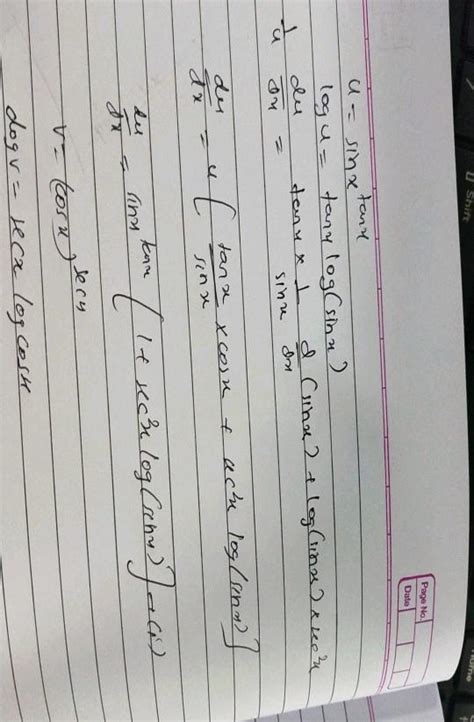 Page No.
Date
u = sinx^tanx
log u = tanx log(sinx)
1/u du/dx = tanx × 1/sinx d/dx (sinx) + log(sinx) × sec²x
du/dx = u [ tanx/sinx × cosx + sec²x log(sinx) ]
du/dx = sinx^tanx [ 1 + sec²x log(sinx) ] – (i)
v = (cosx)^secx
log v = secx log cosx
Shift
Home